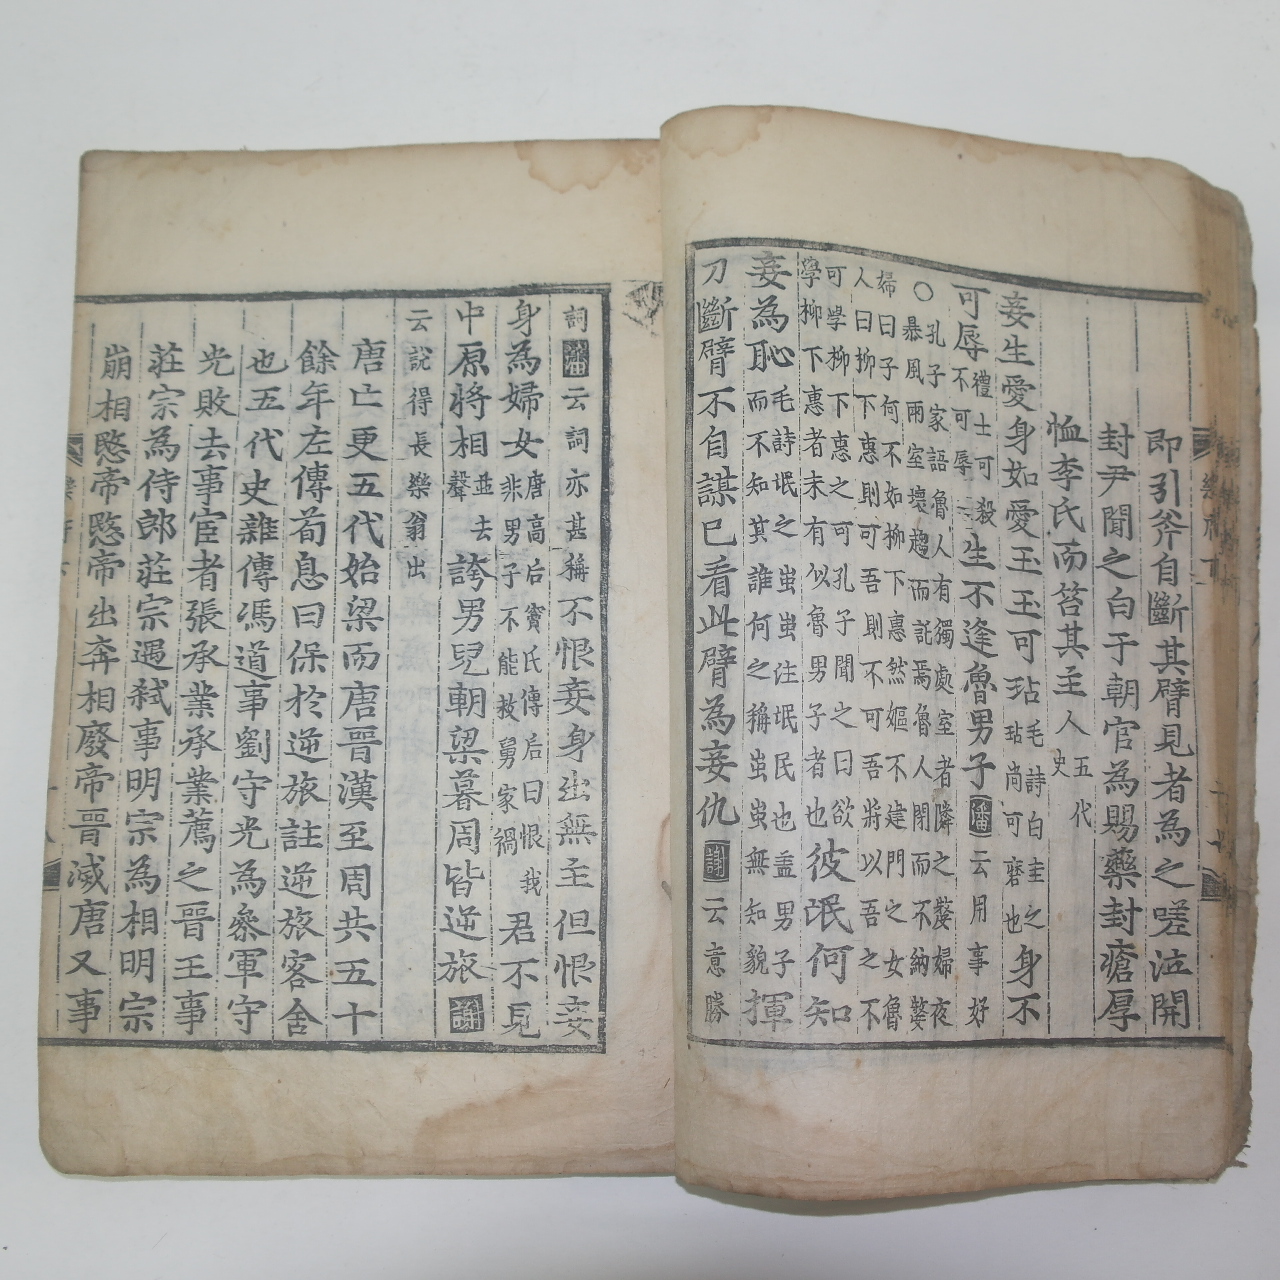 即引斧自斷其臂見者為之嗟泣開
封尹聞之白于朝官為賜藥封瘡厚
恤李氏而笞其主人五代史
妾生愛身如愛玉玉可玷毛詩白圭之玷尚可磨也身不
可辱禮士可殺不可辱生不逢魯男子潘云用事好
○孔子家語魯人有獨處室者隣之嫠婦夜
暴風雨室壞趨而託焉魯人閉而不納嫠
婦曰子何不如柳下惠然嫗不建門之女魯
人曰柳下惠則可吾則不可吾將以吾之不
可學柳下惠之可孔子聞之曰欲
學柳下惠者未有似魯男子者也彼氓何知
妾為恥毛詩氓之蚩蚩注氓民也盖男子
而不知其誰何之稱蚩蚩無知貌揮
刀斷臂不自謀已看此臂為妾仇謝云意勝
詞潘云詞亦甚稱不恨妾身出無主但恨妾
身為婦女唐高后竇氏傳后曰恨我
非男子不能救舅家禍君不見
中原將相並去聲誇男兒朝梁暮周皆逆旅謝
云說得長樂翁出
唐亡更五代始梁而唐晉漢至周共五十
餘年左傳荀息曰保於逆旅註逆旅客舍
也五代史雜傳馮道事劉守光為參軍守
光敗去事宦者張承業承業薦之晉王事
莊宗為侍郎莊宗遇弒事明宗為相明宗
崩相愍帝愍帝出奔相廢帝晉滅唐又事